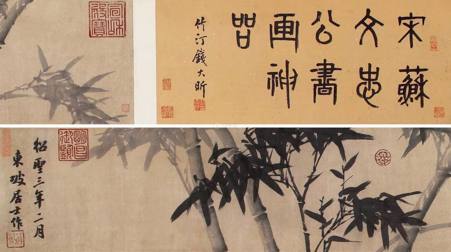 宋蘇
文忠
公書
畫神
品
竹汀錢大昕
紹聖三年二月
東坡居士作